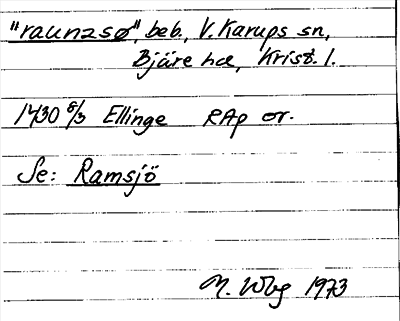 "raunzsø", beb., V. Karups sn,
Bjäre hd, Krist. l.
1430 8/3 Ellinge RAp or.
Se: Ramsjö
1973